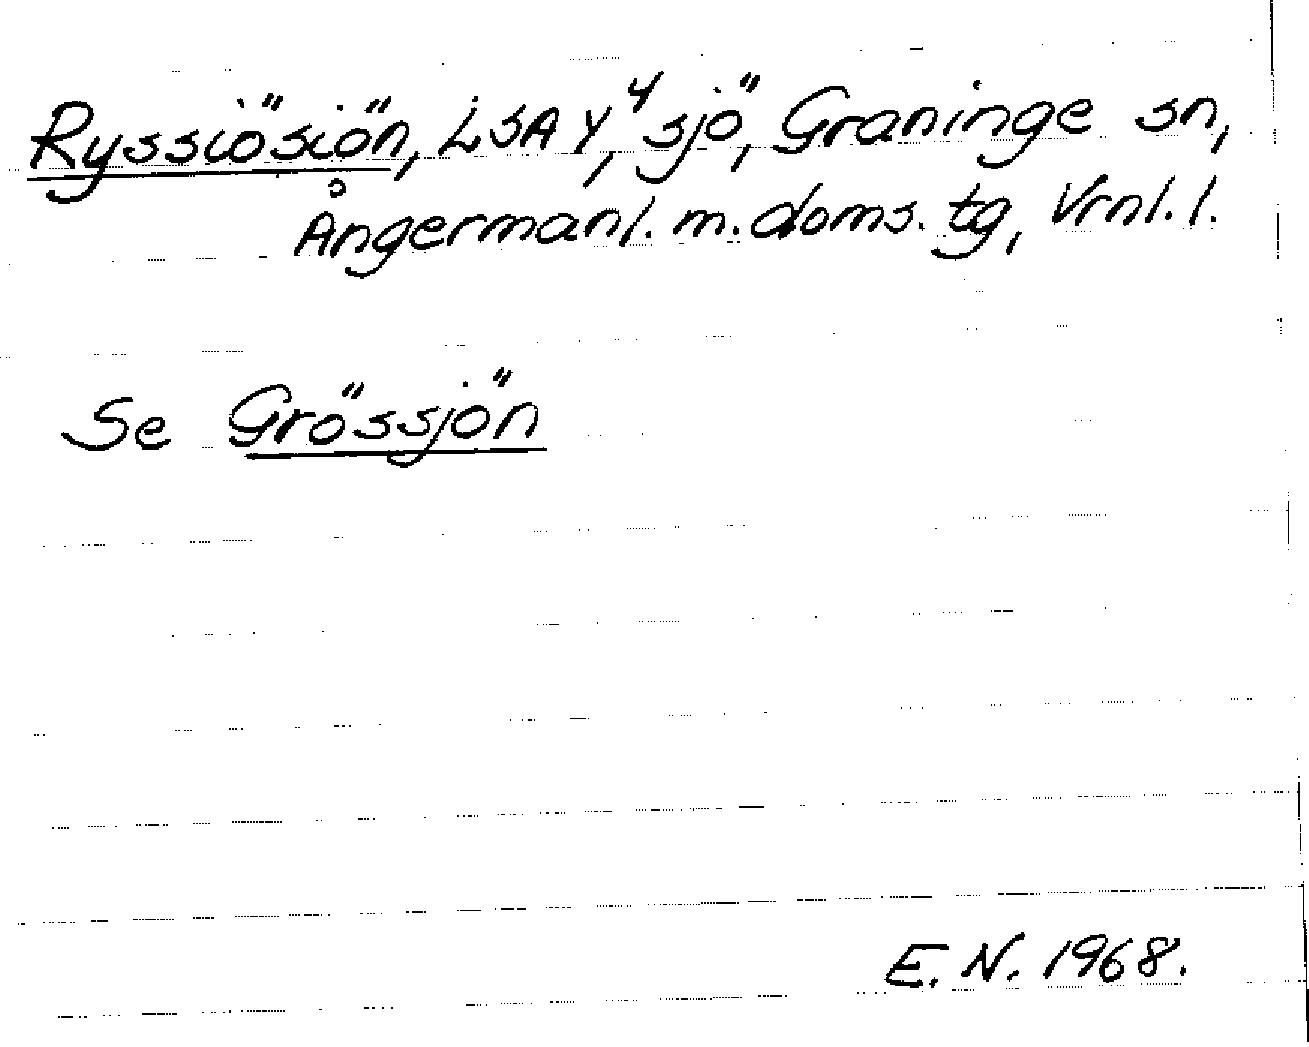 Ryssiösiön, LSA Y⁴, sjö, Graninge sn,
Ångermanl. m. doms. tg, Vrnl. l.
Se Grössjön
E. N. 1968.